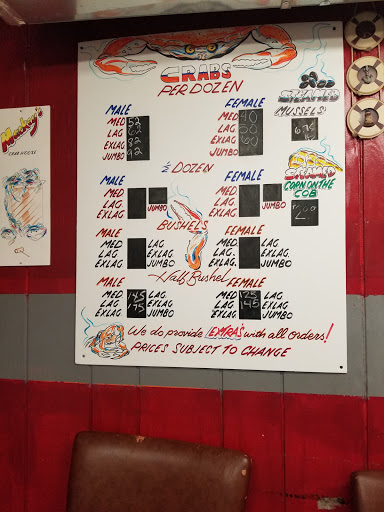 CRABS
PER DOZEN
MALE
MED 52
LAG 62
EXLAG 82
JUMBO 92
FEMALE
MED 40
LAG 50
EXLAG 60
JUMBO
STEAMED
MUSSELS
½ DOZEN
MALE
MED
LAG. JUMBO
EXLAG.
FEMALE
MED
LAG. JUMBO
EXLAG
STEAMED
CORN ON THE
COB
BUSHELS
MALE
MED LAG
LAG EXLAG.
EXLAG JUMBO
FEMALE
MED LAG
LAG EXLAG.
EXLAG JUMBO
Half Bushel
MALE
MED 145 LAG
LAG 175 EXLAG
EXLAG JUMBO
FEMALE
MED 125 LAG
LAG 145 EXLAG.
EXLAG JUMBO
We do provide EXTRAS with all orders!
PRICES SUBJECT TO CHANGE
CRAB HOUSE